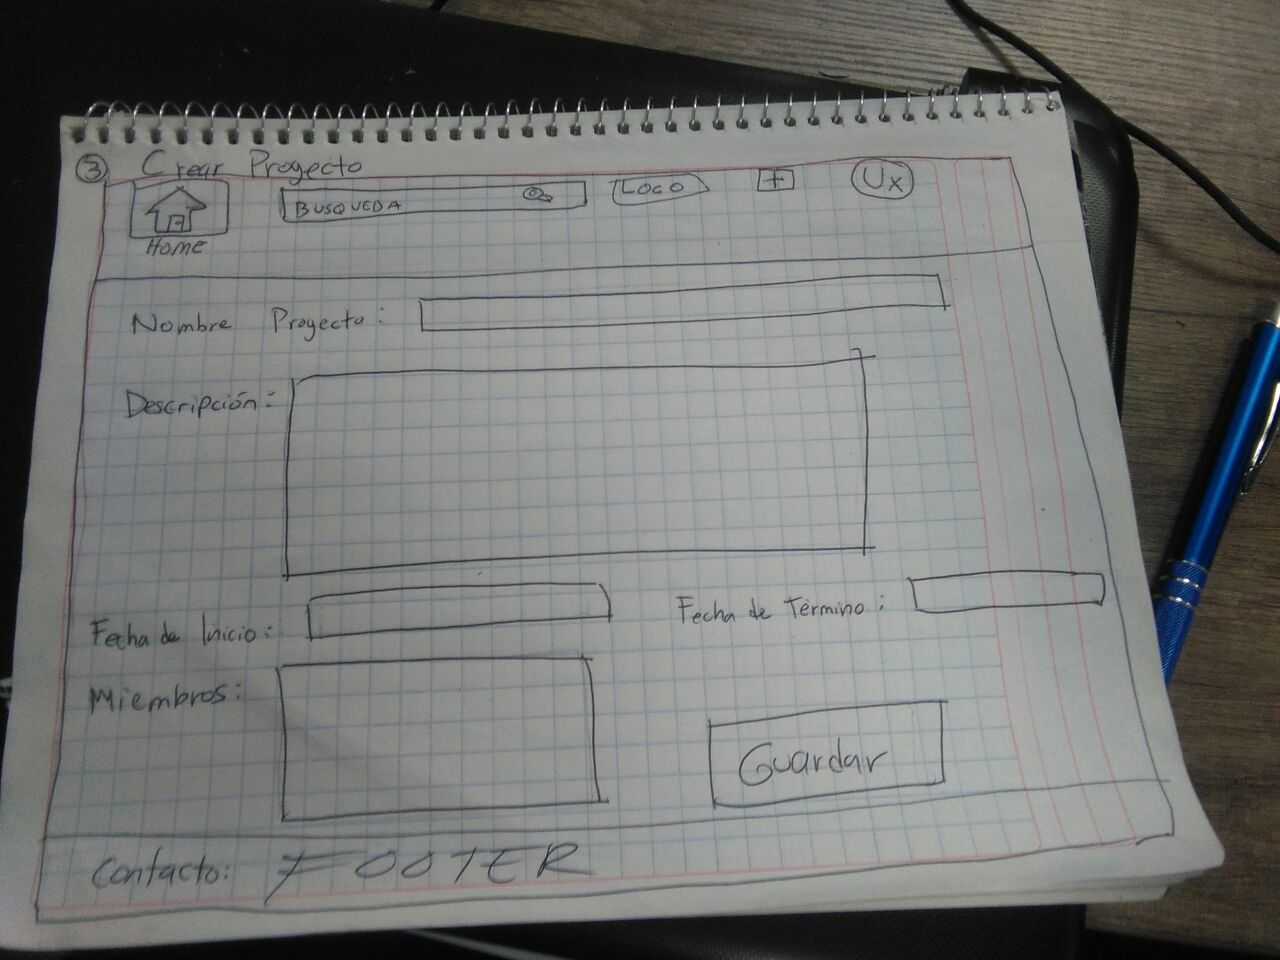 ③ Crear Proyecto
BUSQUEDA LOGO + Ux
Home
Nombre Proyecto:
Descripción:
Fecha de Inicio: Fecha de Término:
Miembros:
Guardar
Contacto: FOOTER